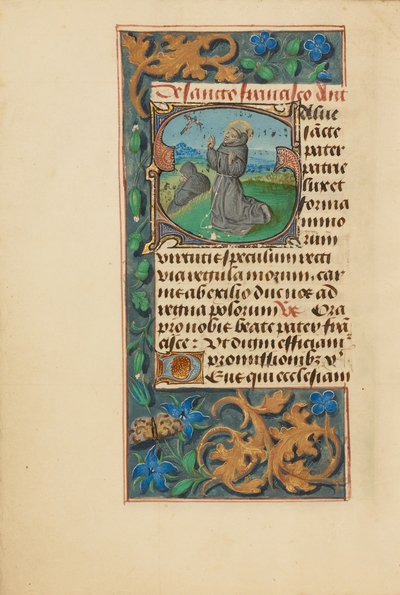 De sancto francisco ant
alue
sācte
pater
patrie
lux et
forma
mino
rum
virtutis speculum recti
via regula morum, car
nis ab exilio duc nos ad
regna polorum Vs Ora
pro nobis beate pater frā
cisce: Vt digni efficiam̄
promissionibz x̄
Deus qui ecclesiam